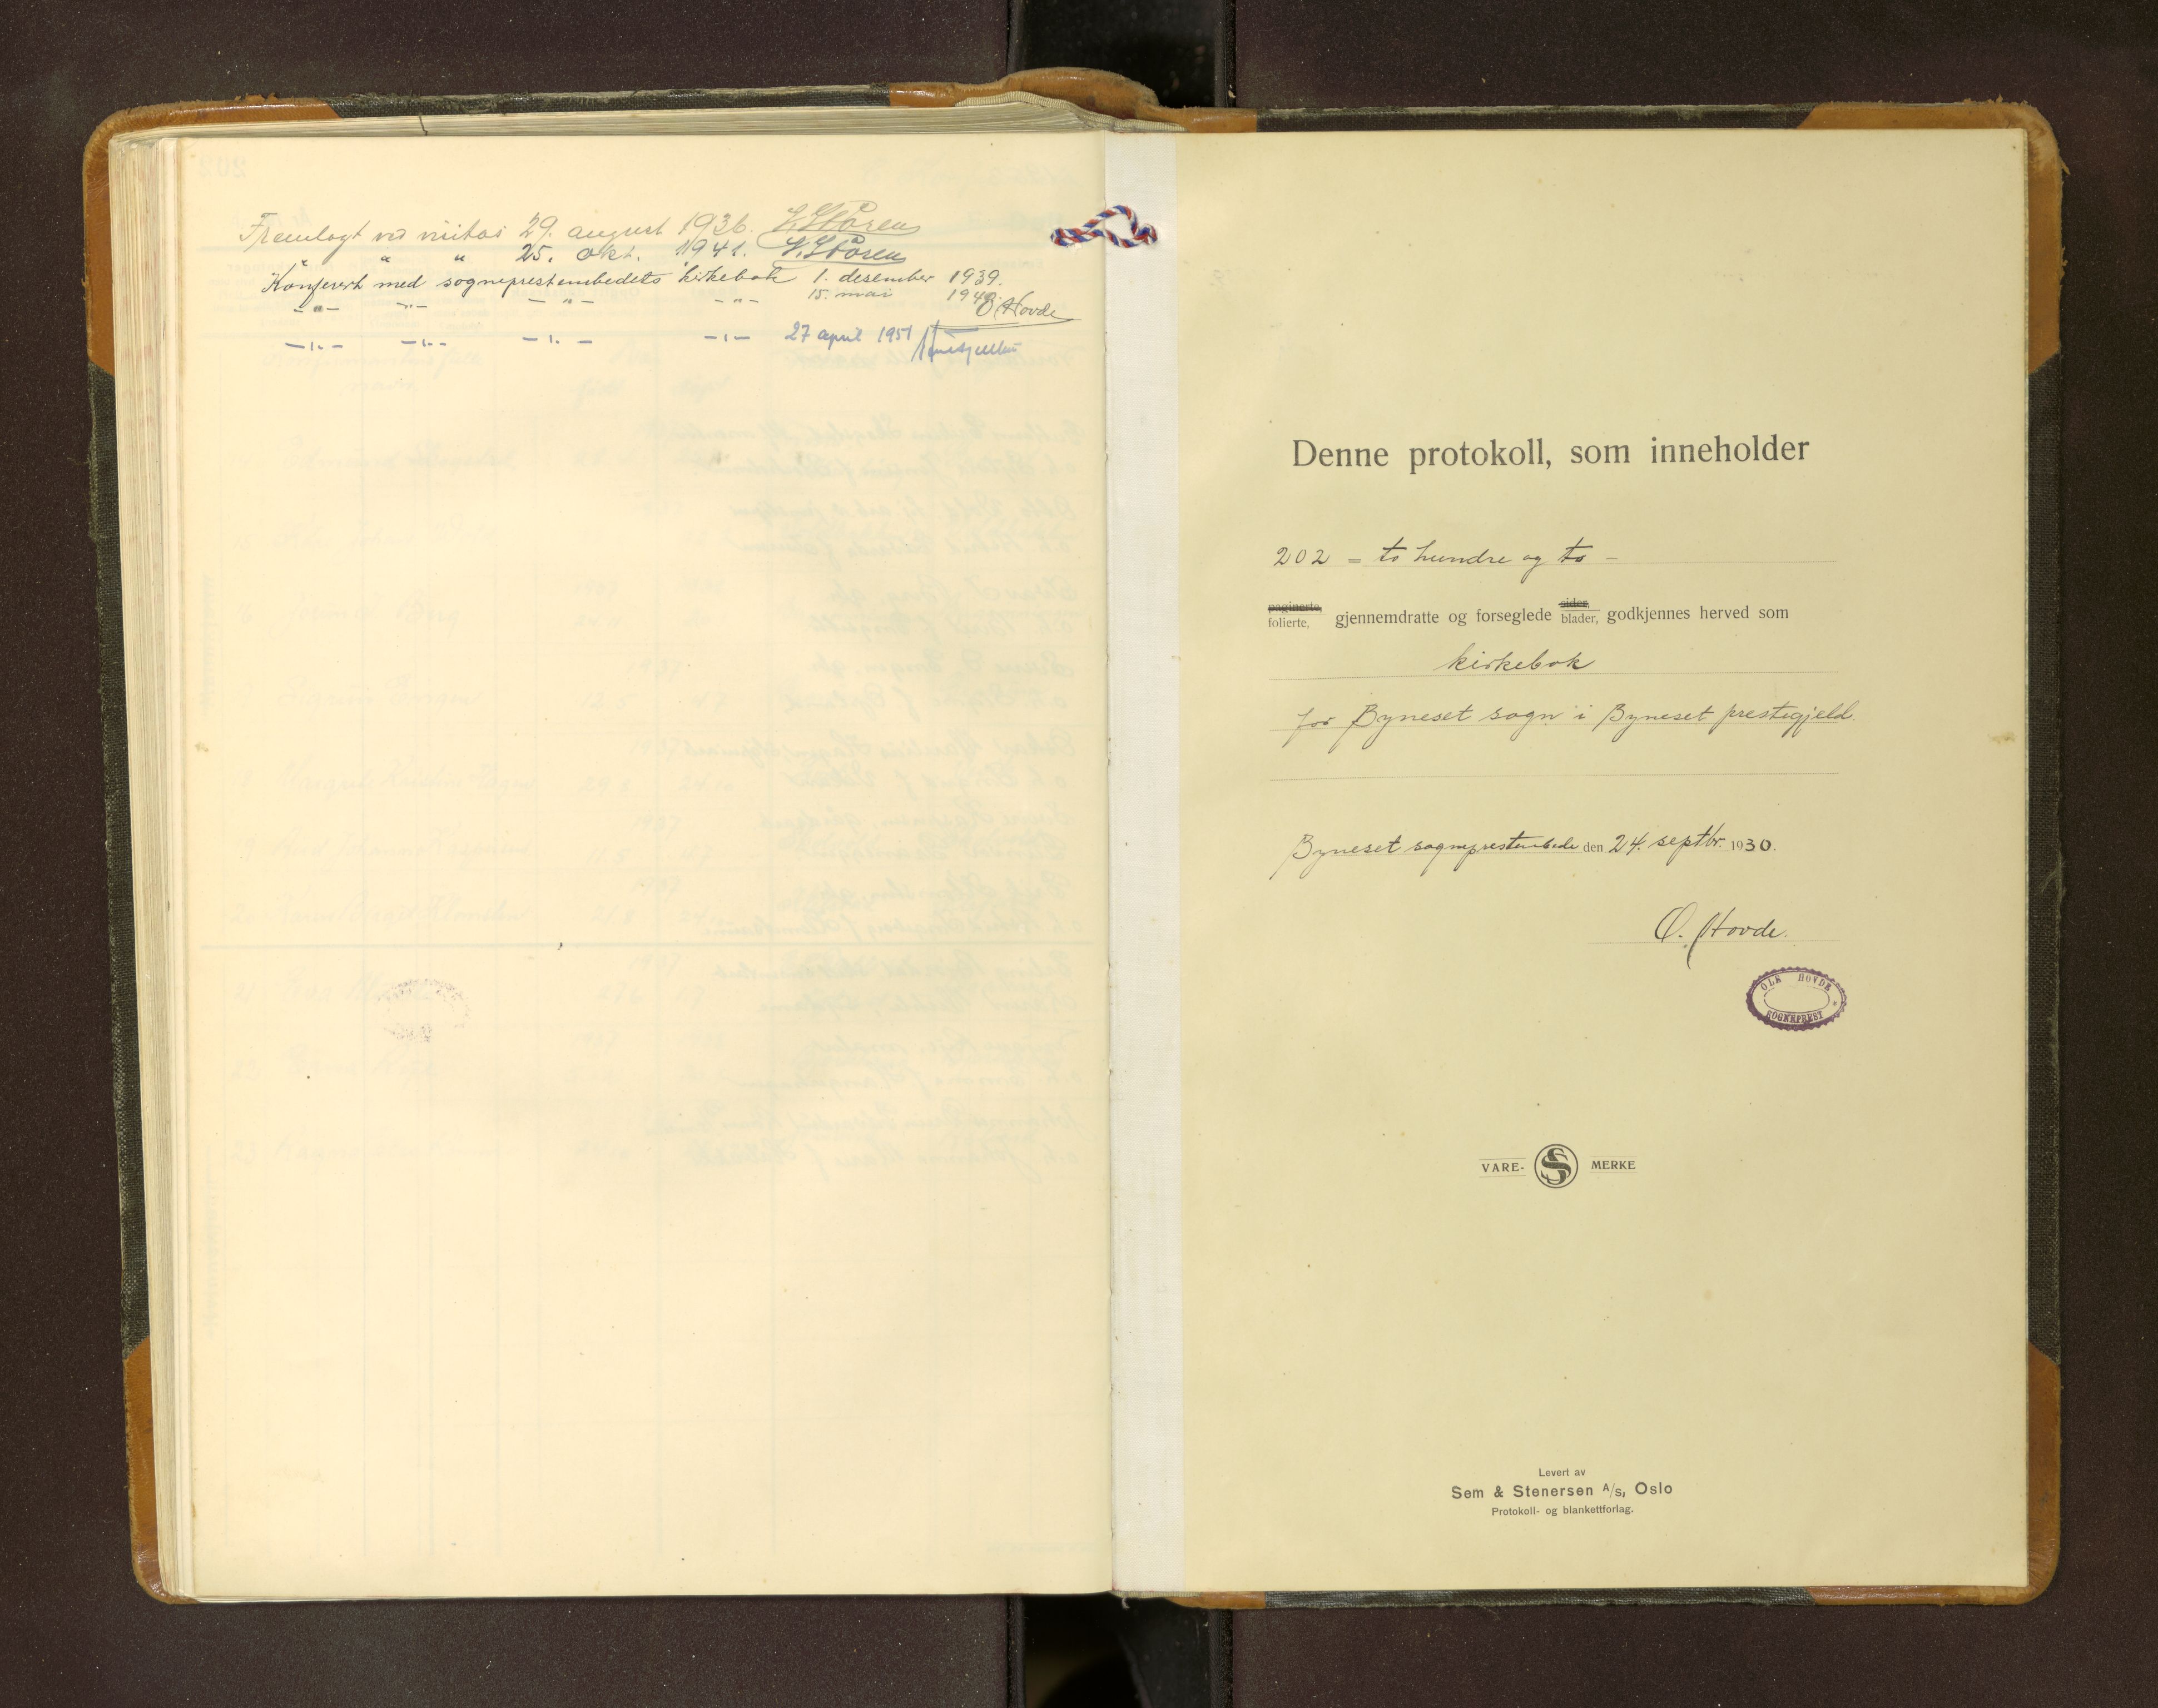 Fremlagt ved visitas 29. august 1936. Støren
" " 25. okt. 1941. Støren
Konferert med sogneprestembedets kirkebok 1. desember 1939.
-"- -"- -"- -"- 15. mai O. Hovde
-"- -"- -"- -"- 27 april 1951
Denne protokoll, som inneholder
202 = to hundre og to -
paginerte, sider,
folierte, gjennemdratte og forseglede blader, godkjennes herved som
kirkebok
for Byneset sogn i Byneset prestegjeld.
Byneset sogneprestembede den 24. septbr. 1930.
O. Hovde.
OLE HOVDE
SOGNEPREST
VARE- S MERKE
Levert av
Sem & Stenersen A/s, Oslo
Protokoll- og blankettforlag.